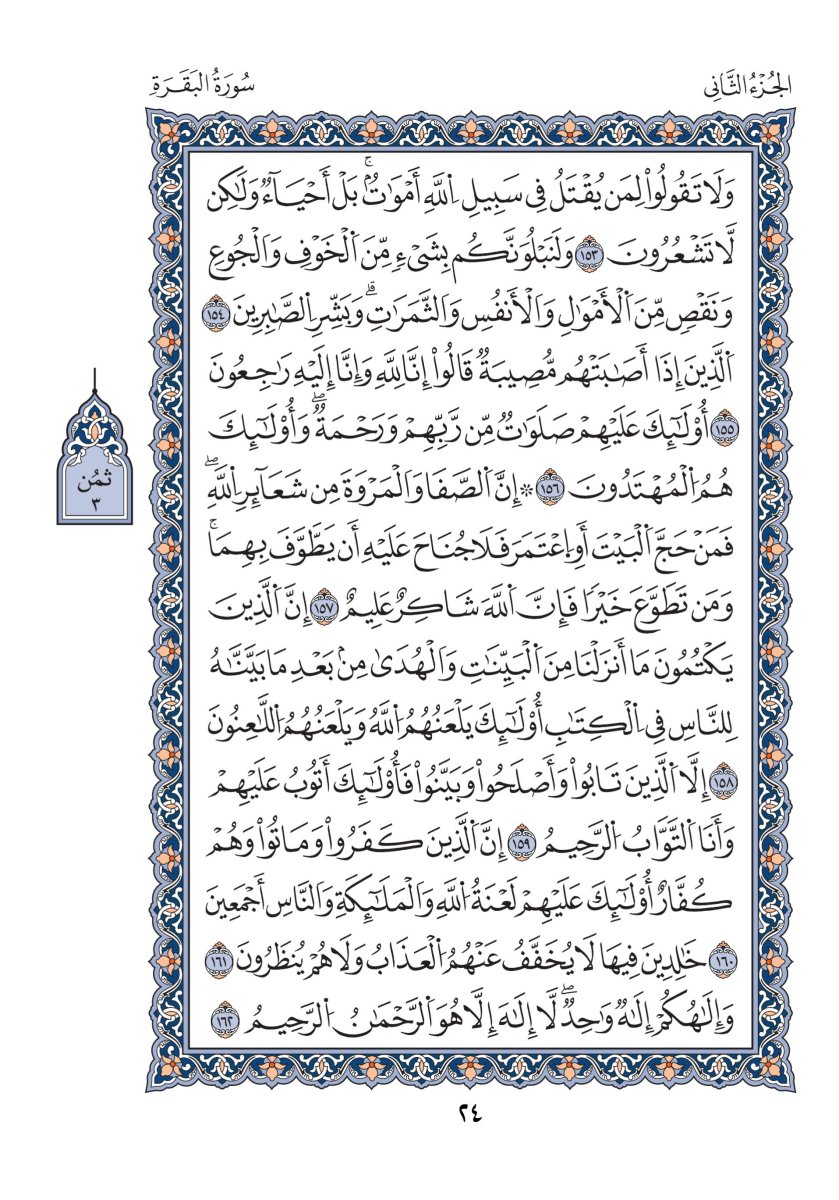 الجُزْءُ الثَّانِى
سُورَةُ البَقَرَةِ
وَلَا تَقُولُواْ لِمَن يُقْتَلُ فِى سَبِيلِ اِ۬للَّهِ أَمْوَٰتُۢۚ بَلْ أَحْيَآءٌ وَلَٰكِن
لَّا تَشْعُرُونَ ١٥٣ وَلَنَبْلُوَنَّكُم بِشَىْءٍ مِّنَ اَ۬لْخَوْفِ وَالْجُوعِ
وَنَقْصٍ مِّنَ اَ۬لْأَمْوَٰلِ وَالْأَنفُسِ وَالثَّمَرَٰتِۗ وَبَشِّرِ اِ۬لصَّٰبِرِينَ ١٥٤
اَ۬لَّذِينَ إِذَا أَصَٰبَتْهُم مُّصِيبَةٌ قَالُواْ إِنَّا لِلَّهِ وَإِنَّا إِلَيْهِ رَٰجِعُونَ
١٥٥ أُوْلَٰٓئِكَ عَلَيْهِمْ صَلَوَٰتٌ مِّن رَّبِّهِمْ وَرَحْمَةٌۖ وَأُوْلَٰٓئِكَ
هُمُ اُ۬لْمُهْتَدُونَ ١٥٦ ۞ إِنَّ اَ۬لصَّفَا وَالْمَرْوَةَ مِن شَعَآئِرِ اِ۬للَّهِۖ
فَمَنْ حَجَّ اَ۬لْبَيْتَ أَوِ اِ۪عْتَمَرَ فَلَا جُنَاحَ عَلَيْهِ أَن يَطَّوَّفَ بِهِمَاۚ
وَمَن تَطَوَّعَ خَيْرًا فَإِنَّ اَ۬للَّهَ شَاكِرٌ عَلِيمٌ ١٥٧ إِنَّ اَ۬لَّذِينَ
يَكْتُمُونَ مَا أَنزَلْنَا مِنَ اَ۬لْبَيِّنَٰتِ وَالْهُدَىٰ مِنۢ بَعْدِ مَا بَيَّنَّٰهُ
لِلنَّاسِ فِى اِ۬لْكِتَٰبِ أُوْلَٰٓئِكَ يَلْعَنُهُمُ اُ۬للَّهُ وَيَلْعَنُهُمُ اُ۬للَّٰعِنُونَ
١٥٨ إِلَّا اَ۬لَّذِينَ تَابُواْ وَأَصْلَحُواْ وَبَيَّنُواْ فَأُوْلَٰٓئِكَ أَتُوبُ عَلَيْهِمْ
وَأَنَا اَ۬لتَّوَّابُ اُ۬لرَّحِيمُ ١٥٩ إِنَّ اَ۬لَّذِينَ كَفَرُواْ وَمَاتُواْ وَهُمْ
كُفَّارٌ أُوْلَٰٓئِكَ عَلَيْهِمْ لَعْنَةُ اُ۬للَّهِ وَالْمَلَٰٓئِكَةِ وَالنَّاسِ أَجْمَعِينَ
١٦٠ خَٰلِدِينَ فِيهَا لَا يُخَفَّفُ عَنْهُمُ اُ۬لْعَذَابُ وَلَا هُمْ يُنظَرُونَ ١٦١
وَإِلَٰهُكُمْ إِلَٰهٌ وَٰحِدٌۖ لَّا إِلَٰهَ إِلَّا هُوَ اَ۬لرَّحْمَٰنُ اُ۬لرَّحِيمُ ١٦٢
ثمُن
٣
٢٤